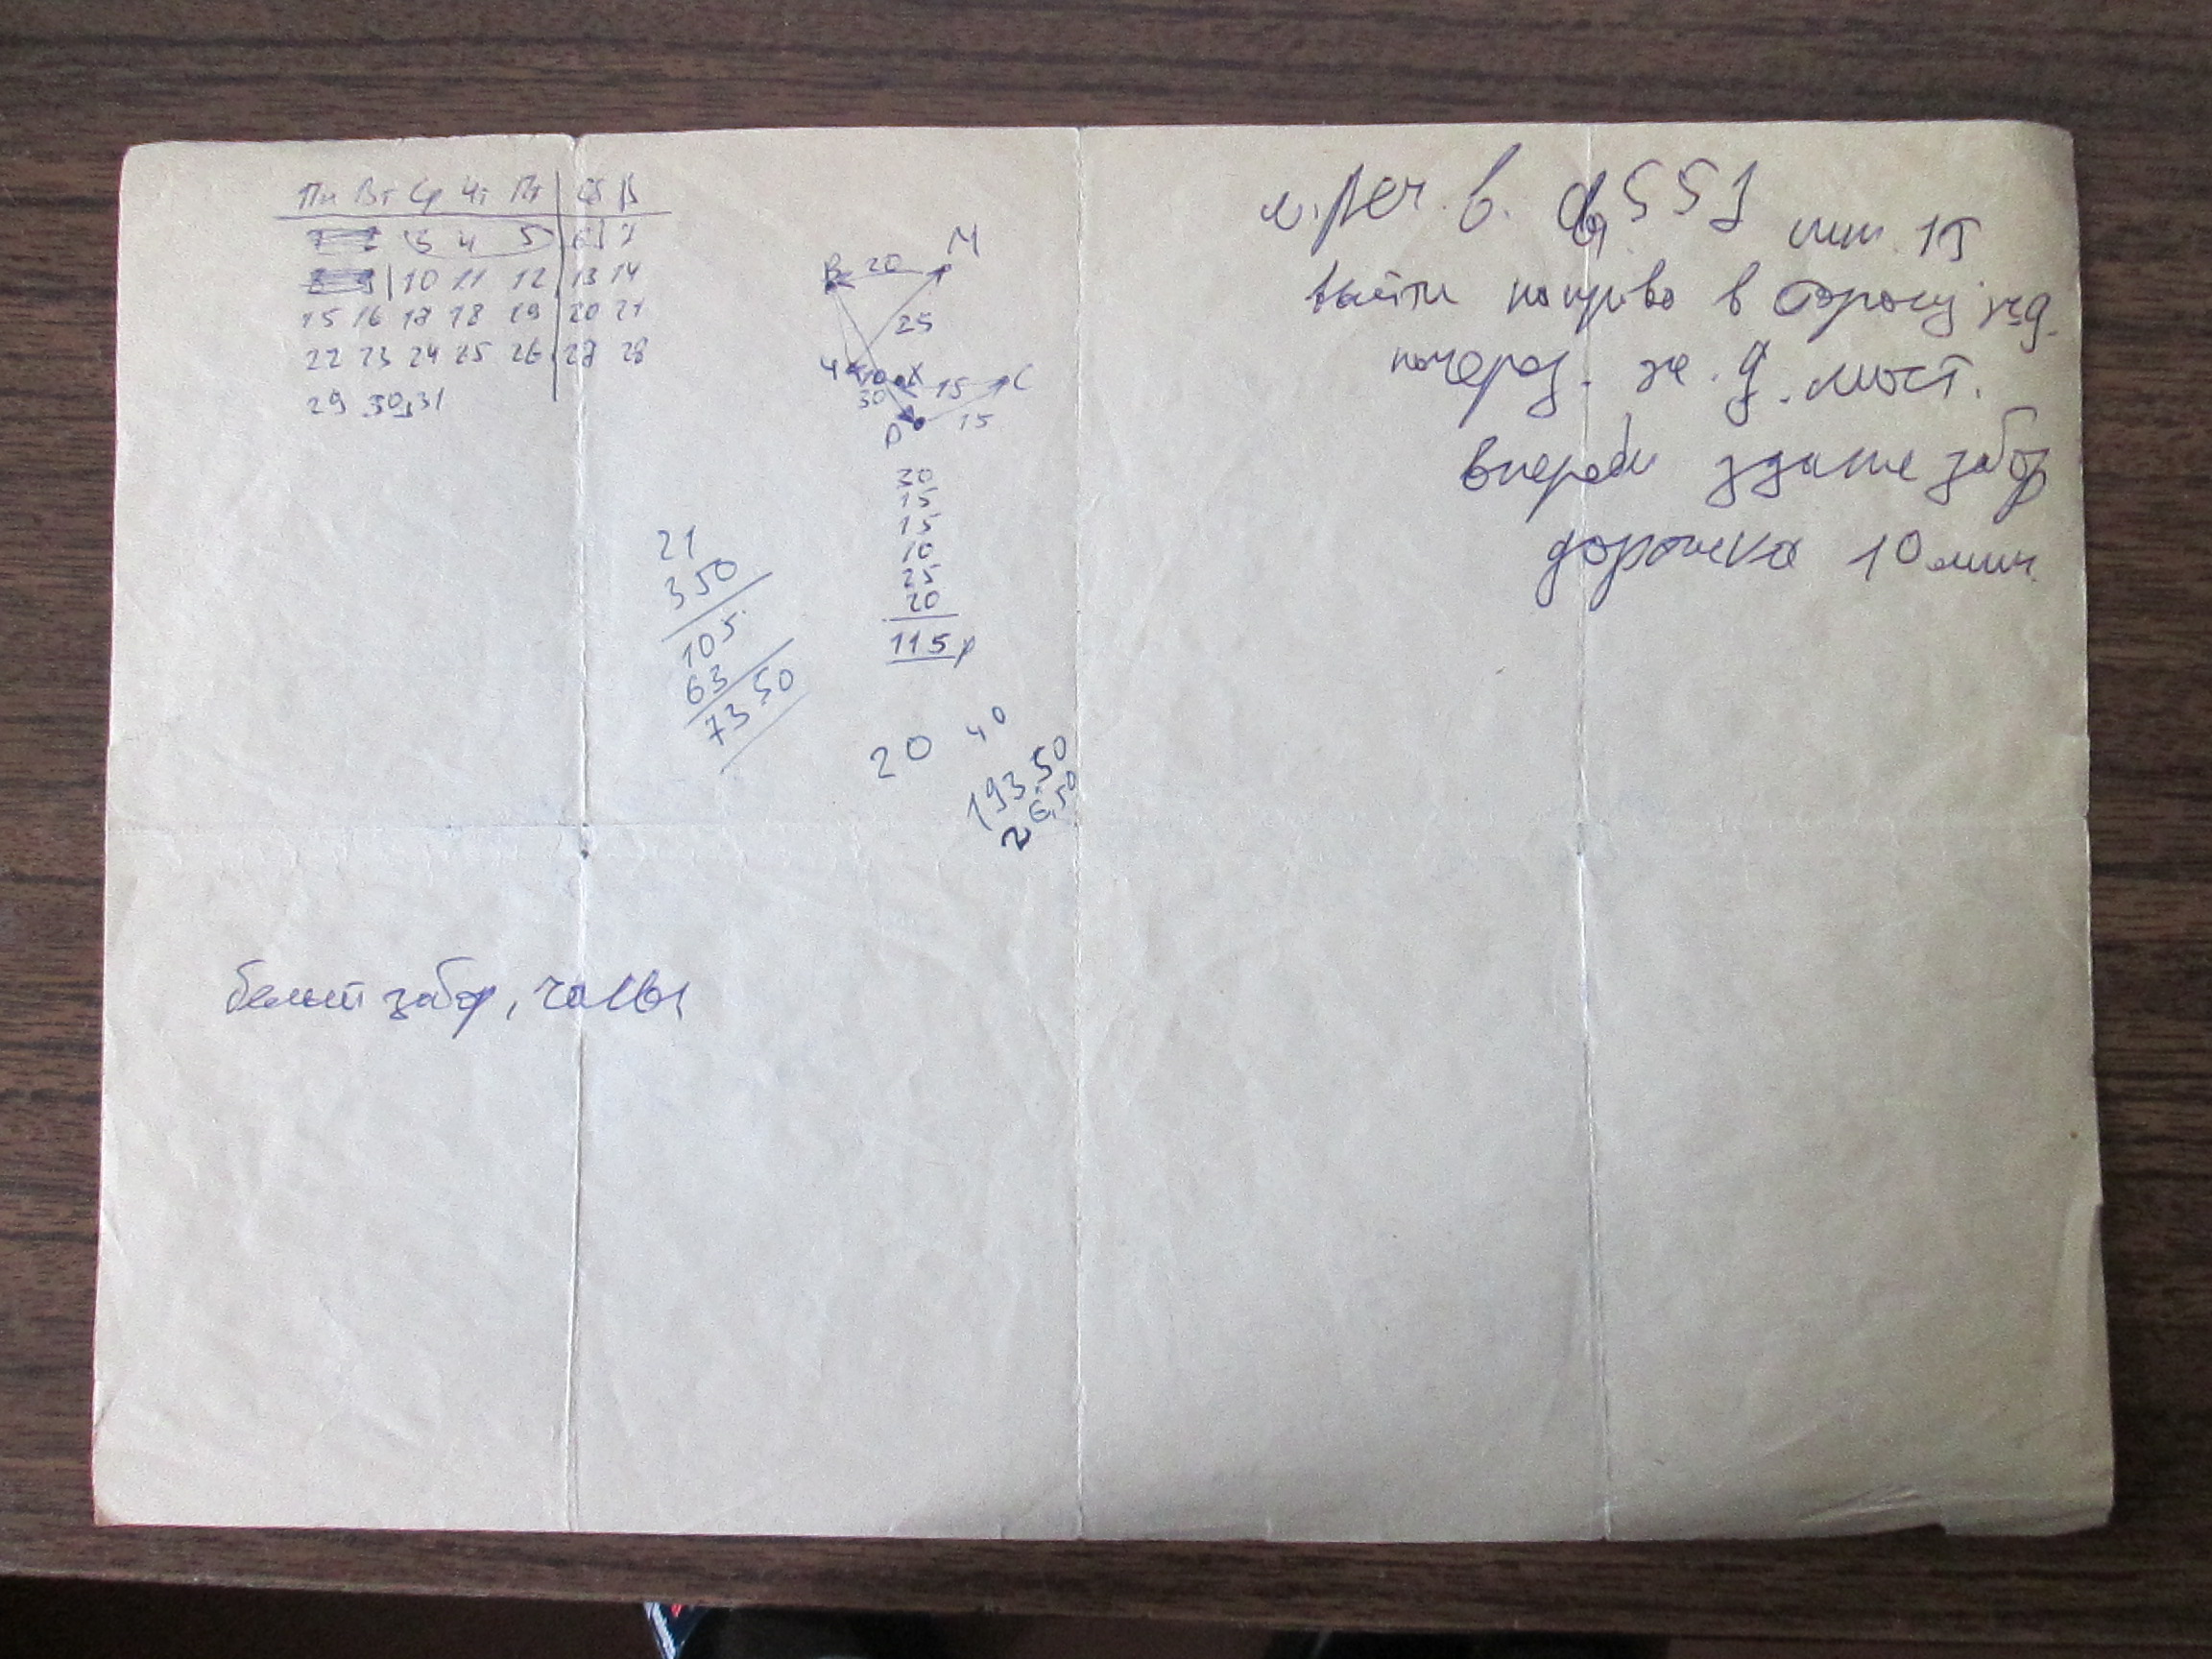 Пн Вт Ср Чт Пт Сб В
3 4 5 6 7
10 11 12 13 14
15 16 17 18 19 20 21
22 23 24 25 26 27 28
29 30 31
В 20 М
25
Ч 10 Х 15 С
30
15
30
15
15
10
25
20
115р
21
350
105
63
73.50
20 40
193.50
26,50
м. реч. в. 551 мин. 15
выйти направо в сторону жд.
за д. мост.
впереди здание забор
дорожка 10 мин.
белый забор, часы